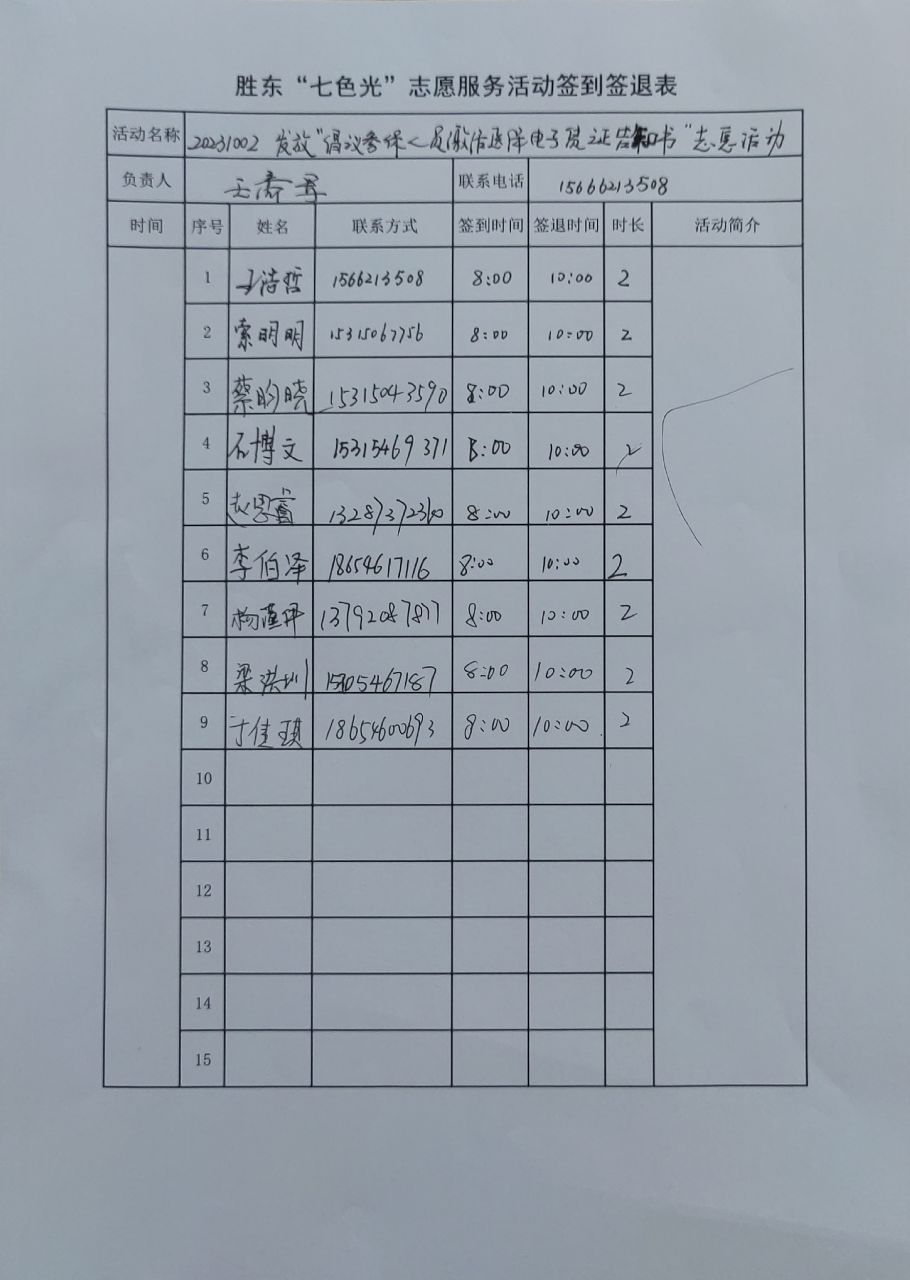 胜东“七色光”志愿服务活动签到签退表
活动名称 20231002 发放“倡议参保人员激活医保电子凭证告知书”志愿活动
负责人 联系电话 15666213508
时间 序号 姓名 联系方式 签到时间 签退时间 时长 活动简介
1 王浩哲 1566213508 8:00 10:00 2
2 索明明 15315067756 8:00 10:00 2
3 蔡昀晓 15315043590 8:00 10:00 2
4 石博文 15315469371 8:00 10:00 2
5 8:00 10:00 2
6 李伯泽 18654617116 8:00 10:00 2
7 13792087877 8:00 10:00 2
8 梁洪圳 15305467187 8:00 10:00 2
9 于佳琪 18654600693 8:00 10:00 2
10
11
12
13
14
15